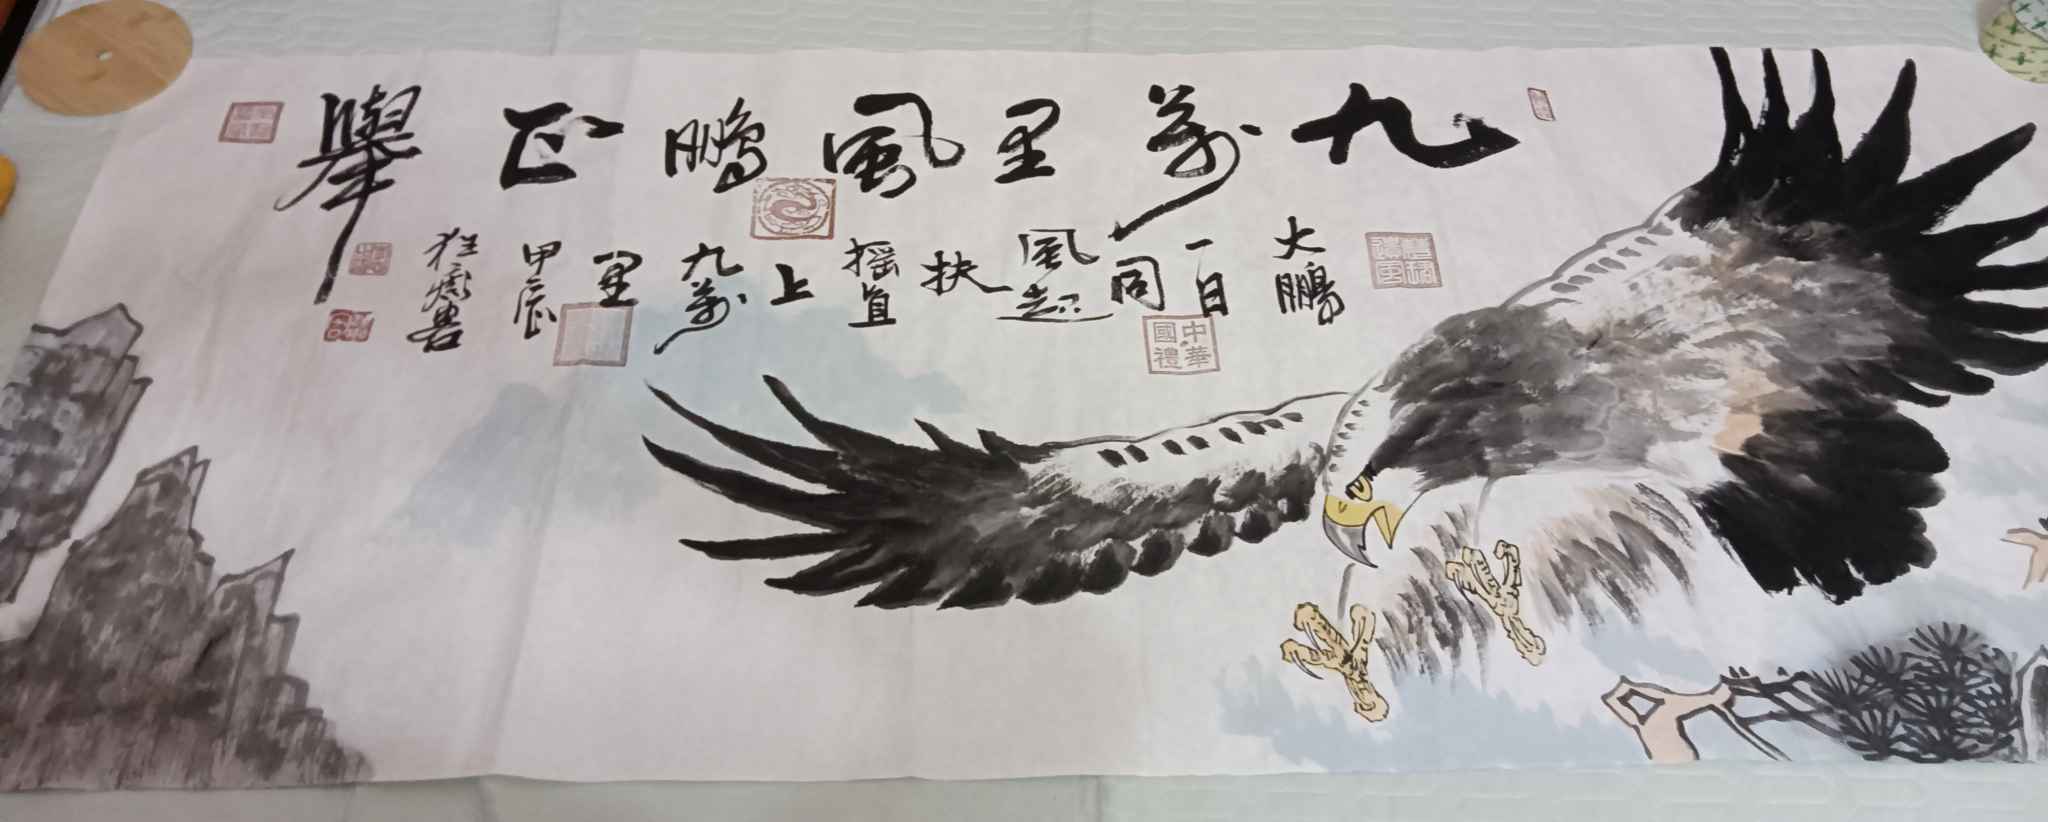 九萬里風鵬正舉
大鵬一日同風起扶搖直上九萬里
甲辰
狂書
中華國禮